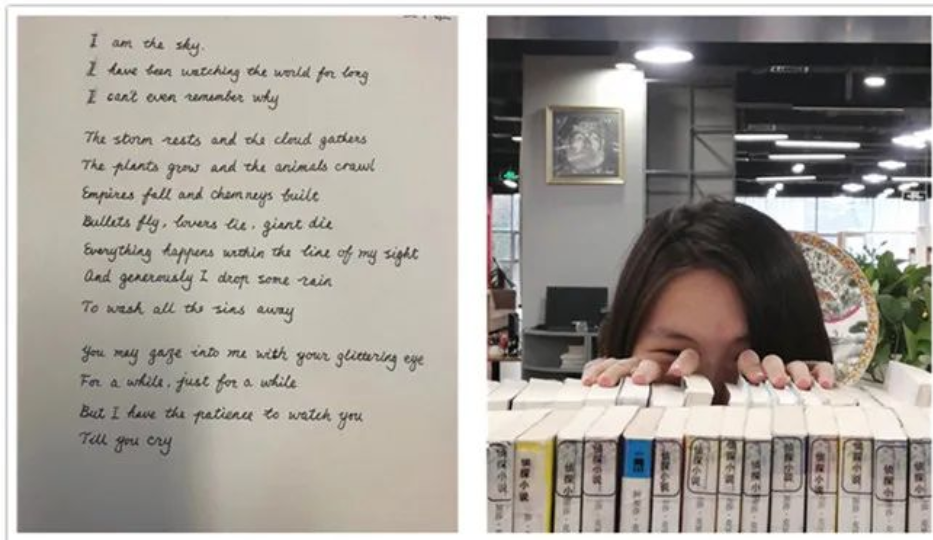 I am the sky.
I have been watching the world for long
I can't even remember why
The storm rests and the cloud gathers
The plants grow and the animals crawl
Empires fall and chemneys built
Bullets fly, lovers lie, giant die
Everything happens within the line of my sight
And generously I drop some rain
To wash all the sins away
You may gaze into me with your glittering eye
For a while, just for a while
But I have the patience to watch you
Till you cry
侦探小说
侦探小说
侦探小说
侦探小说
侦探小说
侦探小说
侦探小说
侦探小说
侦探小说
侦探小说
侦探小说
侦探小说
侦探小说